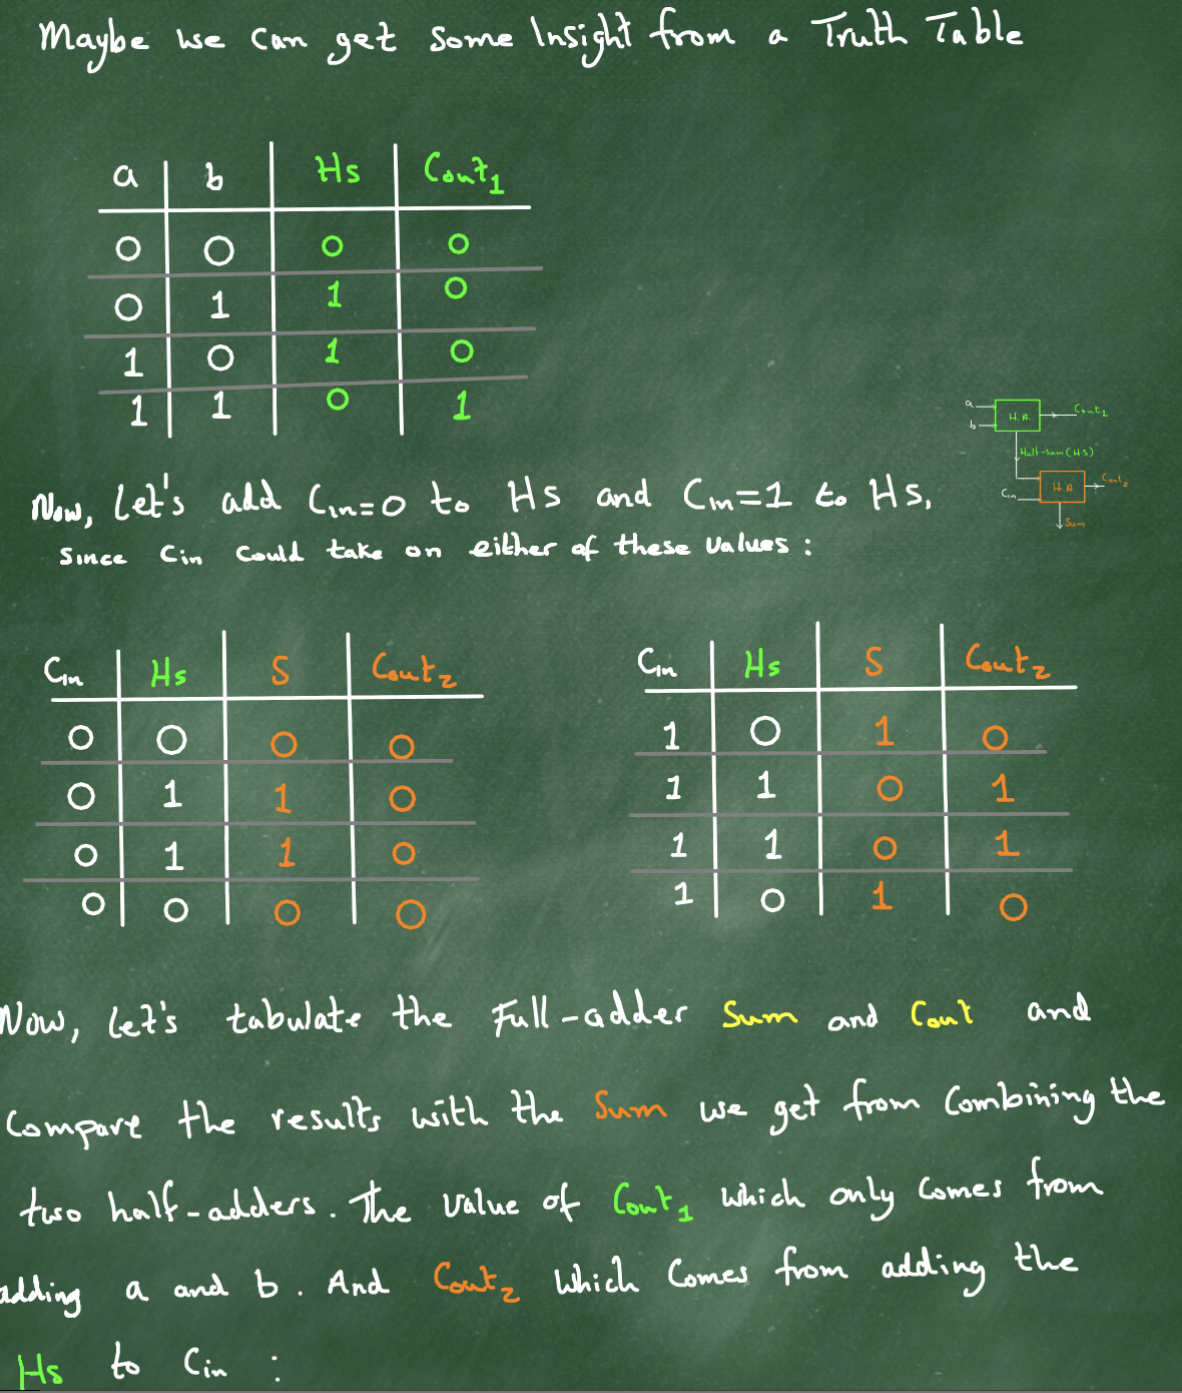 Maybe we can get some Insight from a Truth Table
a b Hs Cout1
0 0 0 0
0 1 1 0
1 0 1 0
1 1 0 1
a
b
H.A.
Cout1
Half-sum (HS)
Cin
H.A
Cout2
Sum
Now, Let's add Cin=0 to Hs and Cin=1 to Hs,
Since Cin Could take on either of these Values :
Cin Hs S Cout2
0 0 0 0
0 1 1 0
0 1 1 0
0 0 0 0
Cin Hs S Cout2
1 0 1 0
1 1 0 1
1 1 0 1
1 0 1 0
Now, Let's tabulate the Full-adder Sum and Cout and
Compare the results with the Sum we get from Combining the
two half-adders. The Value of Cout1 which only Comes from
adding a and b. And Cout2 which Comes from adding the
Hs to Cin :